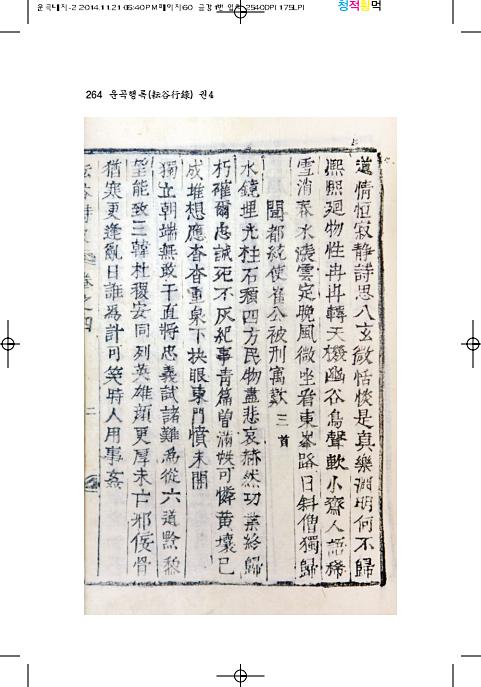 2014.11.21 05:40 PM 페이지 2540DPI 175LPI
청적황먹
264 운곡행록(耘谷行錄) 권4
道情恒寂静詩思入玄微恬惔是真樂淵明何不歸
熙熙廻物性冉冉轉天機幽谷鳥聲軟小齋人語稀
雪消春水淺雲定晚風微坐看東峯路日斜僧獨歸
聞都統使崔公被刑寓歎 三首
水鏡埋光柱石頹四方民物盡悲哀赫然功業終歸
朽確爾忠誠死不灰紀事青篇曾滿帙可憐黃壤已
成堆想應杳杳重泉下抉眼東門憤未開
獨立朝端無敢干直將忠義試諸難為從六道黔黎
望能致三韓社稷安同列英雄顔更厚未亡邪佞骨
猶寒更逢亂日誰為計可笑時人用事姦
卷之四 二